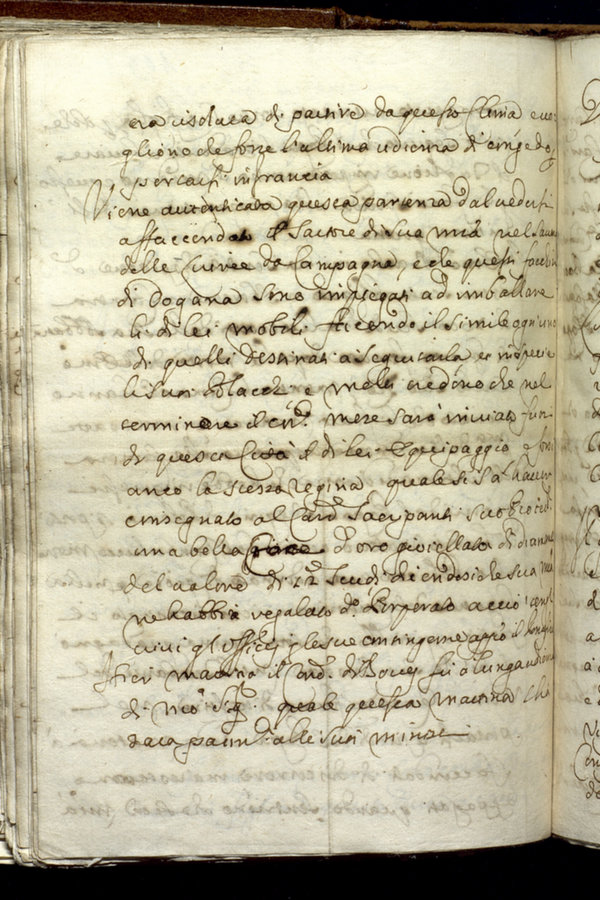 era risoluta di partire da questo Clima e uo
gliono che fosse l'ultima udienza di congedo
per larsi in francia
Viene autenticata questa partenza dal uedersi
affaccendato il Sartore di Sua Mtà nel
delle liuree da Campagna, e che questi facchini
di Dogana sono impiegati ad imballare
li di lei mobili facendo il simile ogn'uno
di quelli destinati a seguitarla et in specie
li suoi Polacchi e molti credono che nel
terminare il corr.e mese sarà inuiato fuori
di questa Città il di lei Equipaggio e
anco la stessa Regina quale si sa hauer
consegnato al Card.e Sacripanti suo
una bella Croce d'oro gioiellata di diamanti
del ualore di Scudi dicendosi che Sua Mtà
ne habbia regalato d.o Porporato acciò
cui gl'offitij per le sue contingenze appo il Pontefice
Hier mattina il Card. di fù a lunga udienza
di N.ro Sig.re quale questa mattina l'ha
data parim.ti alle suoi ministri